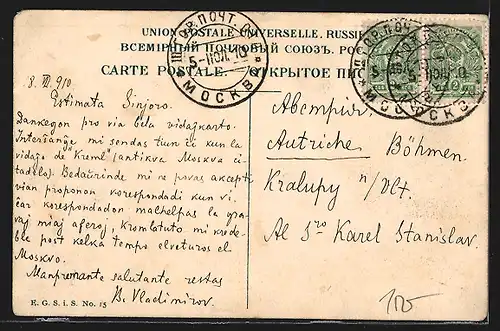 UNION POSTALE UNIVERSELLE. RUSSIE
ВСЕМІРНЫЙ ПОЧТОВЫЙ СОЮЗЪ. РОС
CARTE POSTALE. ОТКРЫТОЕ ПИС
МОСКВА
5-
10
8. VI. 910.
Estimata Sinjoro.
Dankegon pro via bela vidajkarto.
Interŝanĝe mi sendas tiun ĉi kun la
vidajo de "Kreml" (antikva Moskva ci-
tadelo). Bedaŭrinde mi ne povas akcepti
vian proponon korespondadi kun vi
ĉar korespondadon malhelpas la
vaj miaj aferoj, krom tuto mi
ble post kelka tempo elveturos el
Moskvo.
Manpremante salutante restas
B. Vladimirov.
E. G. S. i. S. No. 15
Австрия.
Autriche Böhmen.
Kralupy n/Vlt.
Al Sro Karel Stanislav.